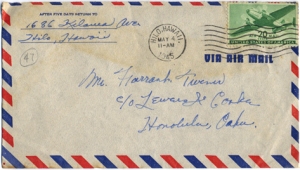 AFTER FIVE DAYS RETURN TO
1686 Kilauea Ave
Hilo, Hawaii
HILO, HAWAII
MAY 4
11-AM
1945
UNITED STATES OF AMERICA
VIA AIR MAIL
47
Mr.
c/o Lewers & Cooke
Honolulu, Oahu